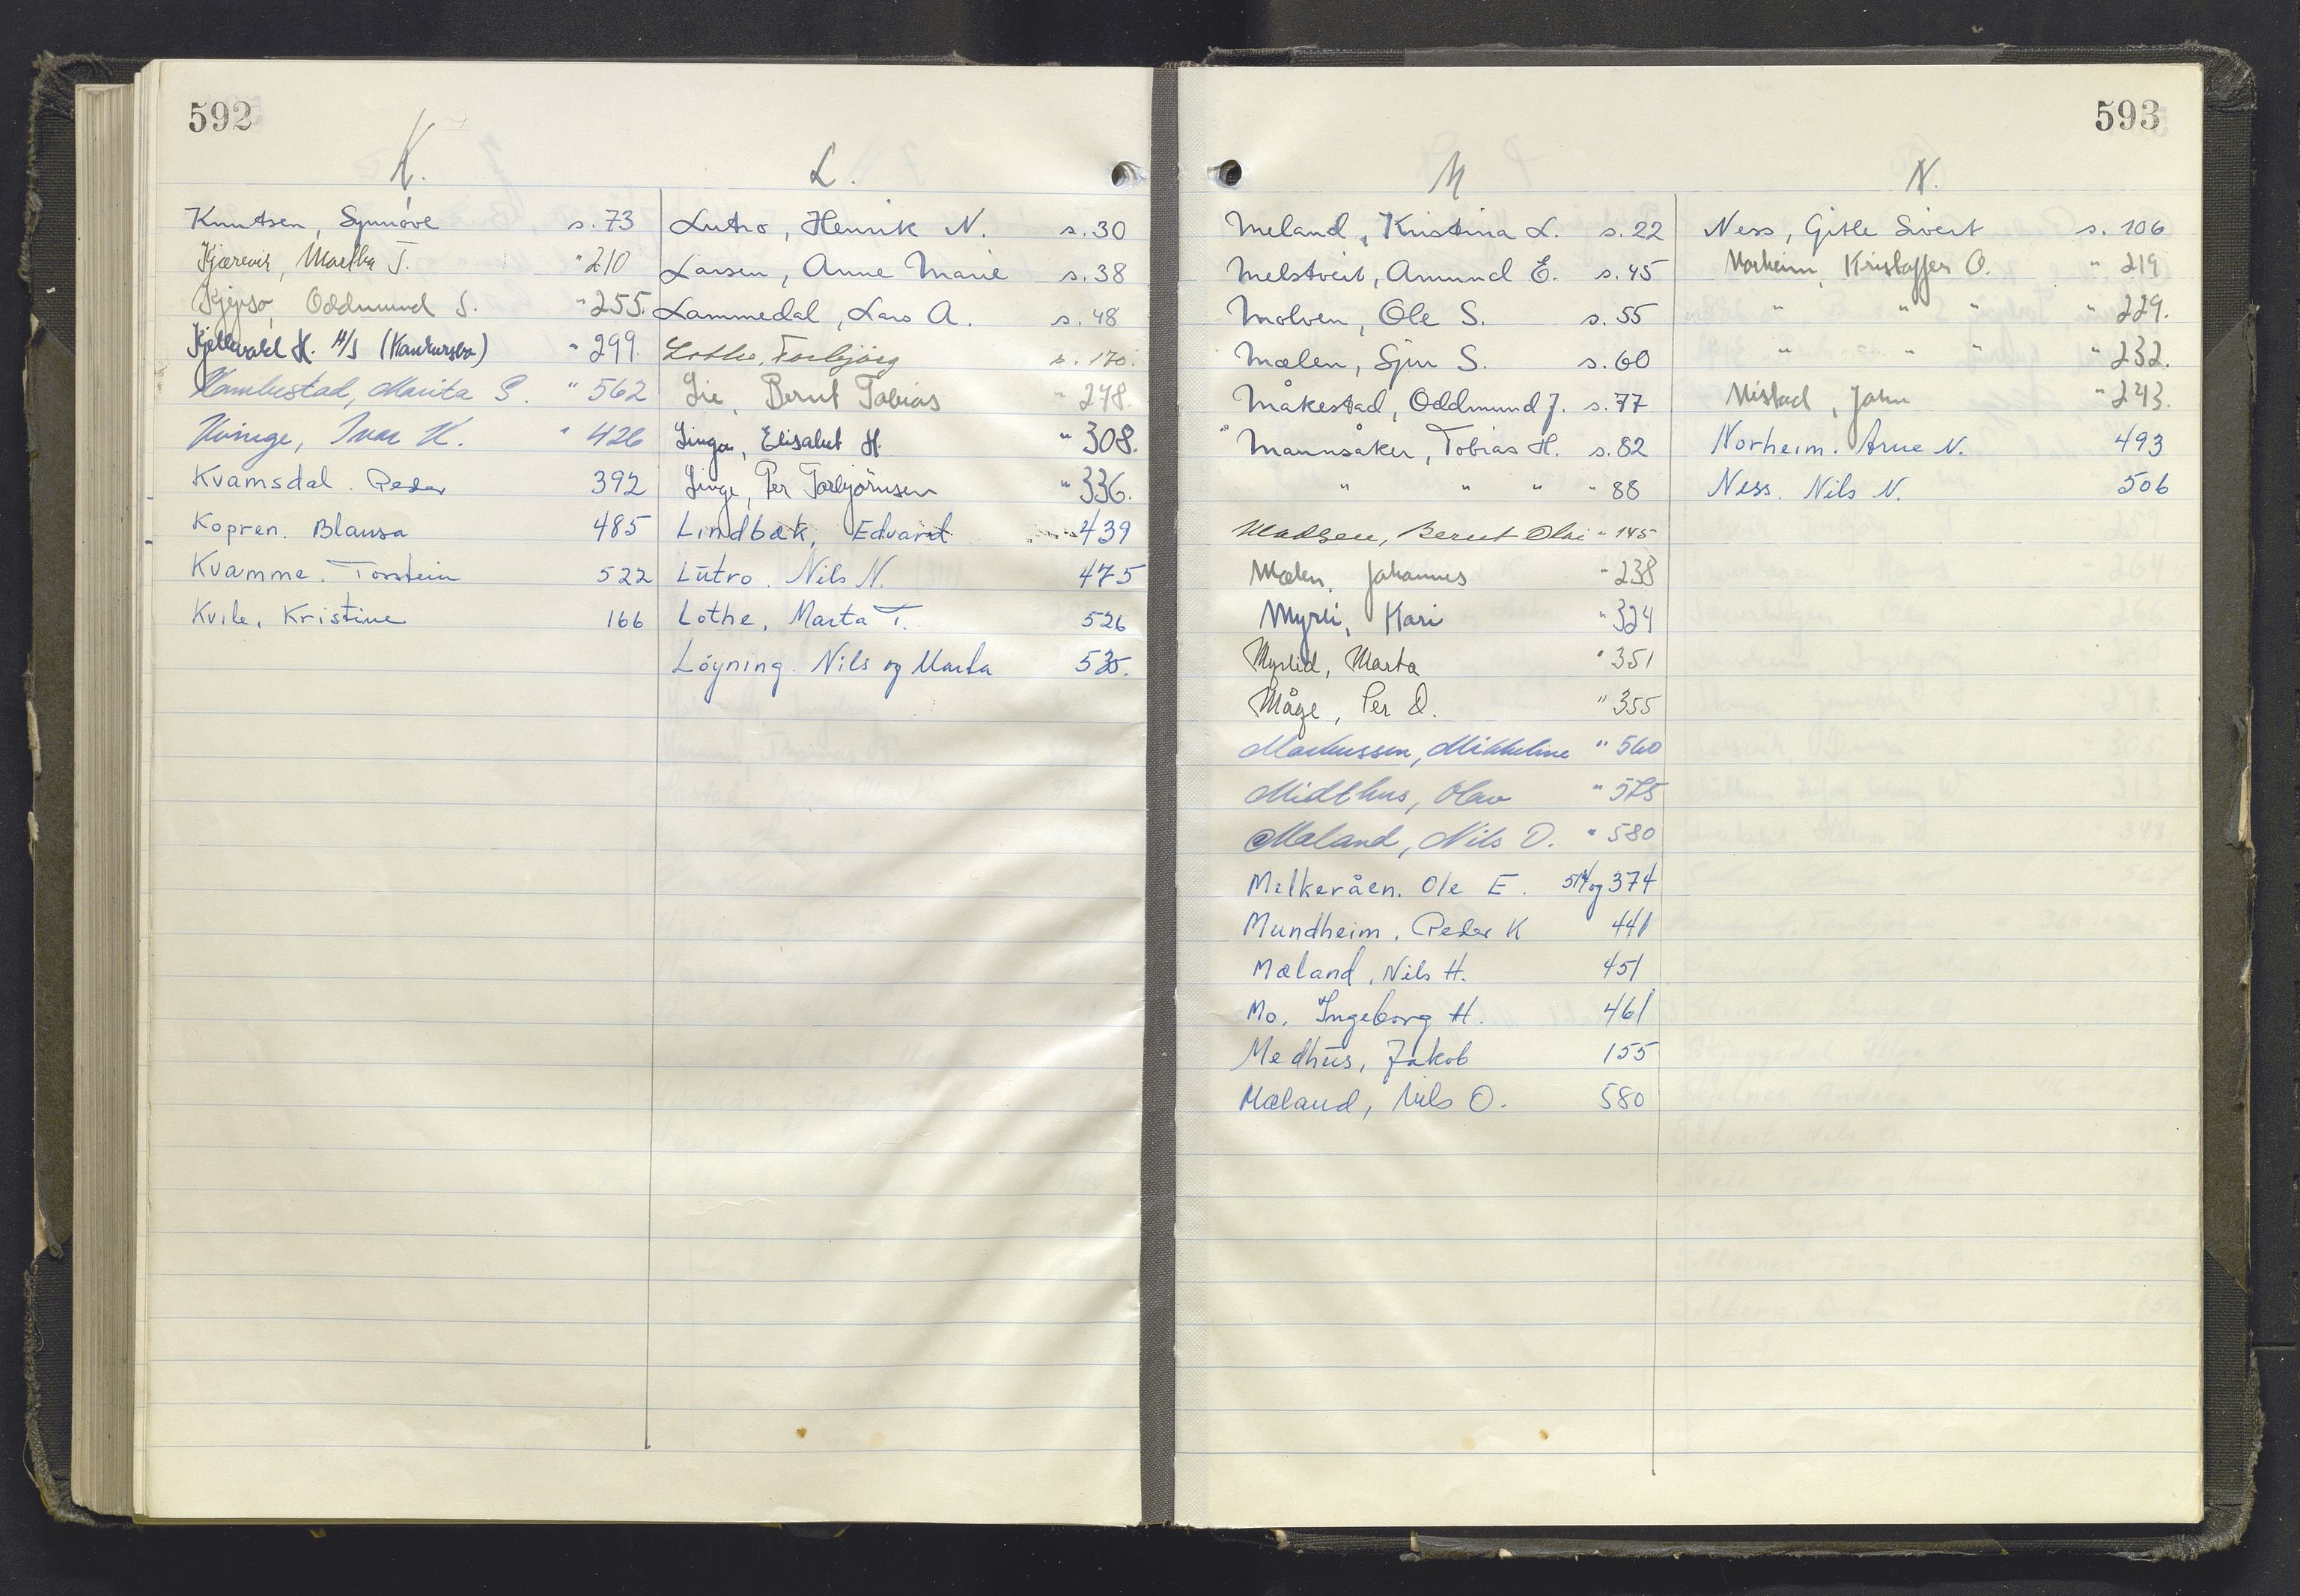 592
K.
Knutsen, Synnöve s. 73
Kjærevik, Martha T. " 210
Kjepso, Oddmund S. " 255.
Kjellevold H. A/S (Konkursbo) " 299.
Kambestad, Marita S. " 562
Kvinge, Ivar K. " 426
Kvamsdal. Peder 392
Kopren. Blansa 485
Kvamme. Torstein 522
Kvile, Kristine 166
L.
Lutro, Henrik N. s. 30
Larsen, Anne Marie s. 38
Lammedal, Lars A. s. 48
Lothe, Torbjörg s. 170.
Lie, Bernt Tobias " 278.
Linga, Elisabet H. " 308.
Linge, Per Torbjörnsen " 336.
Lindbæk, Edvard 439
Lutro. Nils N. 475
Lothe, Marta T. 526
Löyning. Nils og Marta 535.
593
M
Meland, Kristina L. s. 22
Melstveit, Amund E. s. 45
Molven, Ole S. s. 55
Mælen, Sjur S. s. 60
Måkestad, Oddmund J. s. 77
Mannsåker, Tobias H. s. 82
" " " " 88
Madsen, Bernt Olai " 145
Mælen, Johannes " 238
Myrli, Kari " 324
Myrlid, Marta " 351
Måge, Per O. " 355
Markussen, Mikkeline " 560
Midthus, Olav " 575
Mæland, Nils O. " 580
Melkeråen. Ole E. 514 og 374
Mundheim. Peder K 441
Mæland, Nils H. 451
Mo, Ingeborg H. 461
Medhus, Jakob 155
Mæland, Nils O. 580
N.
Ness, Gitle Sivert s. 106
Norheim, Kristoffer O. " 219
" " " " 229.
" " " " 232.
Mistad, John " 243.
Norheim. Arne N. 493
Ness. Nils N. 506